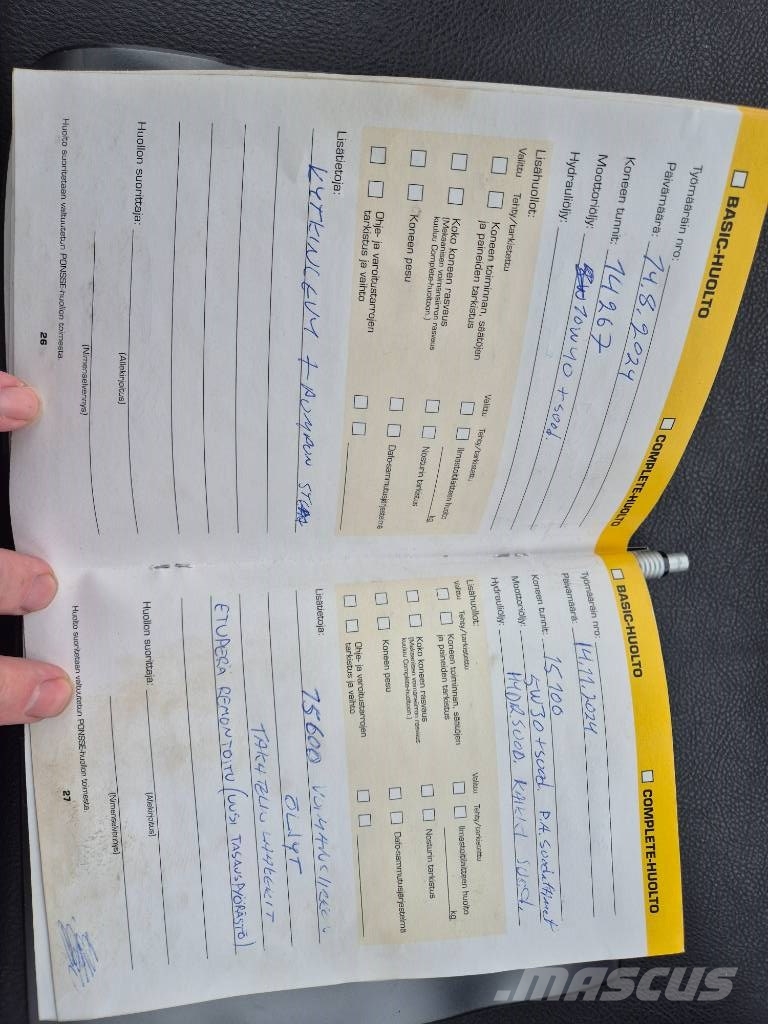 BASIC-HUOLTO
COMPLETE-HUOLTO
Työmääräin nro:
Päivämäärä: 14.8.2024
Koneen tunnit: 14267
Moottoriöljy: 10W40 + suod.
Hydrauliöljy:
Lisähuollot:
Valittu Tehty/tarkistettu
Valittu Tehty/tarkistettu
Koneen toiminnan, säätöjen
ja paineiden tarkistus
Ilmastointilaitteen huolto
kg
Koko koneen rasvaus
(Mekaanisen voimansiirron rasvaus
kuuluu Complete-huoltoon.)
Nosturin tarkistus
Koneen pesu
Dafo-sammutusjärjestelmä
Ohje- ja varoitustarrojen
tarkistus ja vaihto
Lisätietoja:
KYTKINKUMI + PUMPUN
Huollon suorittaja:
(Allekirjoitus)
(Nimenselvennys)
Huolto suoritetaan valtuutetun PONSSE-huollon toimesta.
26
BASIC-HUOLTO
COMPLETE-HUOLTO
Työmääräin nro:
Päivämäärä: 14.11.2024
Koneen tunnit: 15100
Moottoriöljy: 5W30 + suod. P.A. suodattimet
Hydrauliöljy: HYDR SUOD. KAIKKI
Lisähuollot:
Valittu Tehty/tarkistettu
Valittu Tehty/tarkistettu
Koneen toiminnan, säätöjen
ja paineiden tarkistus
Ilmastointilaitteen huolto
kg
Koko koneen rasvaus
(Mekaanisen voimansiirron rasvaus
kuuluu Complete-huoltoon.)
Nosturin tarkistus
Koneen pesu
Dafo-sammutusjärjestelmä
Ohje- ja varoitustarrojen
tarkistus ja vaihto
Lisätietoja: 15600
ÖLJYT
TAKATELIN
ETUPERÄ REMONTOITU (UUSI TASAUSPYÖRÄSTÖ)
Huollon suorittaja:
(Allekirjoitus)
(Nimenselvennys)
Huolto suoritetaan valtuutetun PONSSE-huollon toimesta.
27
MASCUS